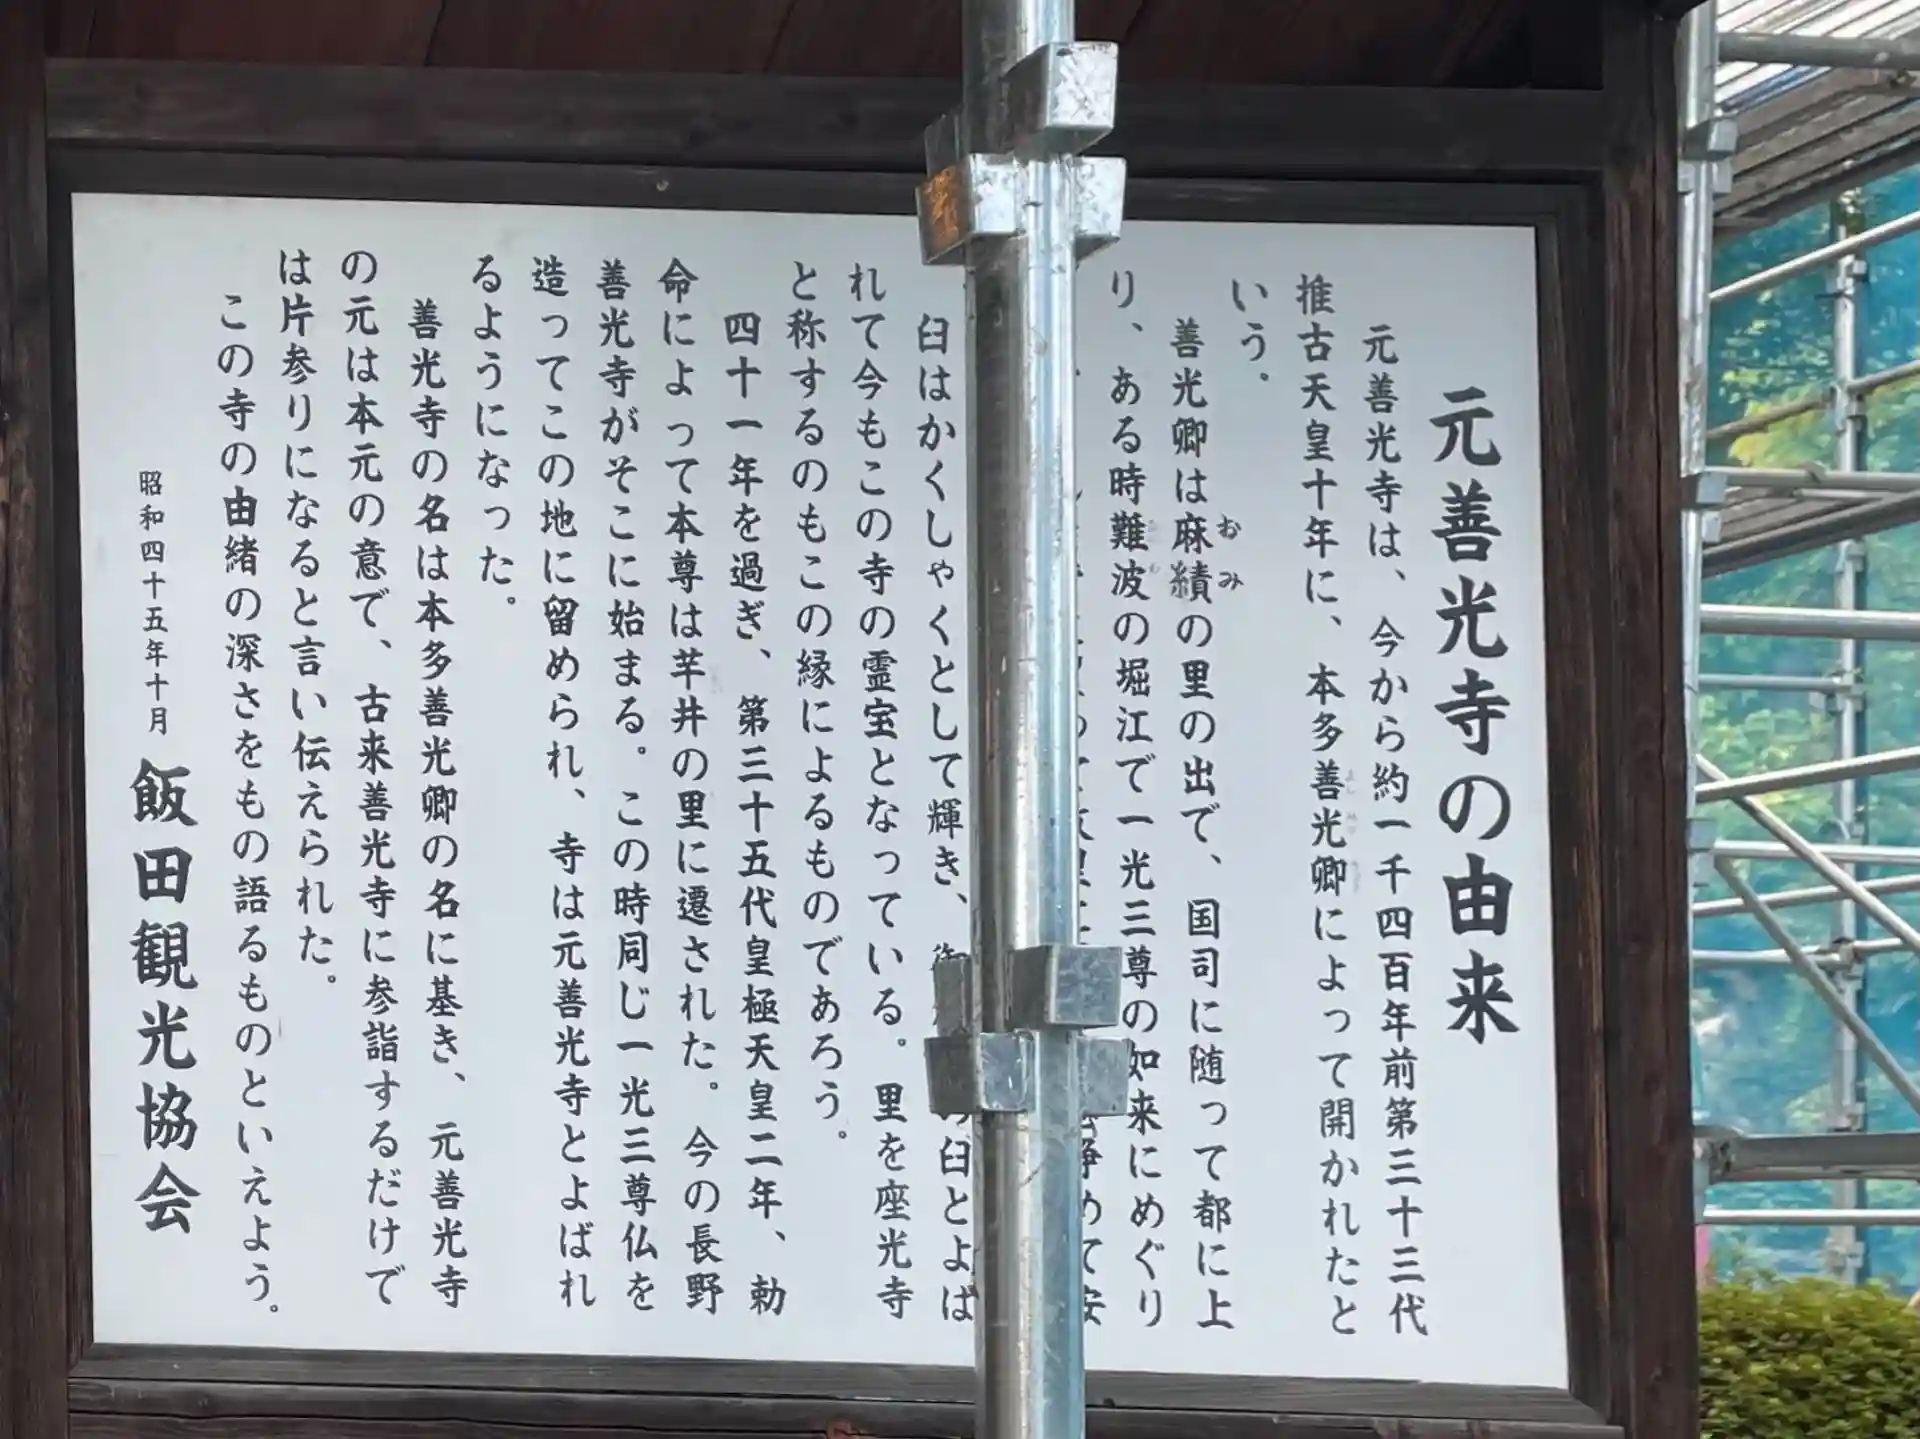 元善光寺の由来
元善光寺は、今から約一千四百年前第三十三代
推古天皇十年に、本多善光卿によって開かれたと
いう。
善光卿は麻績の里の出で、国司に随って都に上
おみ
り、ある時難波の堀江で一光三尊の如来にめぐり
臼はかくしゃくとして輝き、
臼とよば
れて今もこの寺の霊宝となっている。里を座光寺
と称するのもこの縁によるものであろう。
四十一年を過ぎ、第三十五代皇極天皇二年、勅
命によって本尊は芋井の里に遷された。今の長野
善光寺がそこに始まる。この時同じ一光三尊仏を
造ってこの地に留められ、寺は元善光寺とよばれ
るようになった。
善光寺の名は本多善光卿の名に基き、元善光寺
の元は本元の意で、古来善光寺に参詣するだけで
は片参りになると言い伝えられた。
この寺の由緒の深さをもの語るものといえよう。
昭和四十五年十月 飯田観光協会